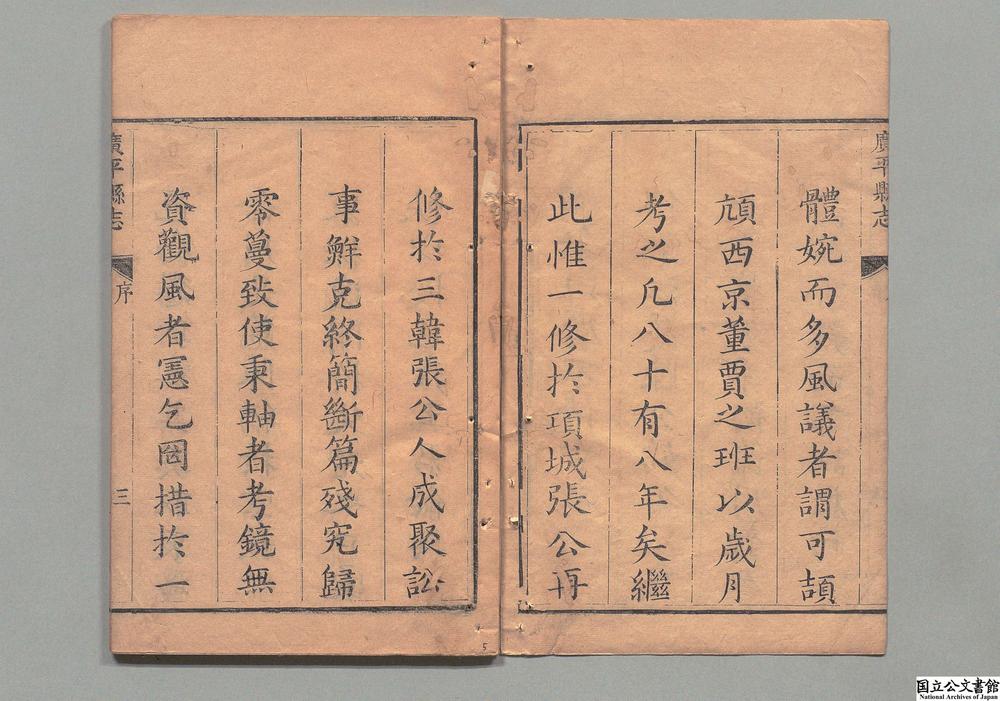 廣平縣志
體婉而多風議者謂可頡
頏西京董賈之班以歲月
考之凡八十有八年矣繼
此惟一修扵項城張公再
修扵三韓張公人成聚訟
事鮮克終簡斷篇殘究歸
零蔓致使秉軸者考鏡無
資觀風者憲乞罔措扵一
廣平縣志 序 三
5
国立公文書館
National Archives of Japan